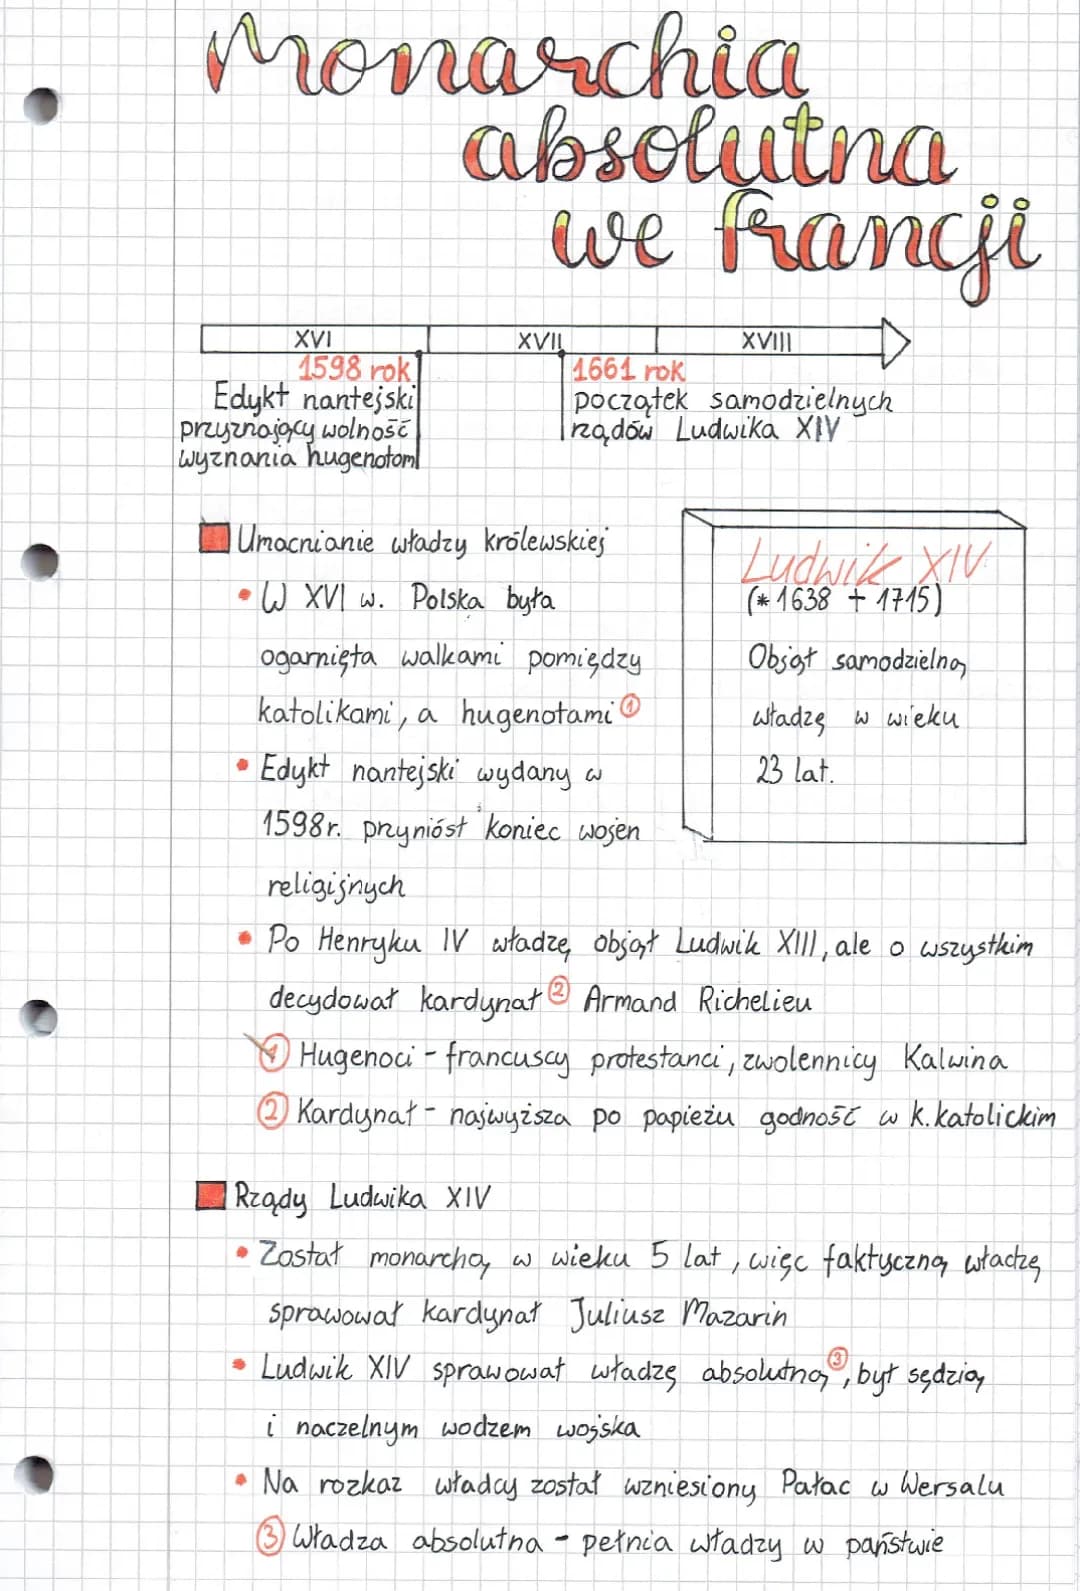 Monarchia
absolutna
we Francji
XVI XVII XVIII
1598 rok
Edykt nantejski
przyznający wolność
wyznania hugenotom
1661 rok
początek samodzielnych
rządów Ludwika XIV
Umacnianie władzy królewskiej
• W XVI w. Polska była
ogarnięta walkami pomiędzy
katolikami, a hugenotami ①
• Edykt nantejski wydany w
1598r. przyniósł koniec wojen
religijnych
Ludwik XIV
(*1638 + 1715)
Objął samodzielną
władzę w wieku
23 lat.
• Po Henryku IV władzę objął Ludwik XIII, ale o wszystkim
decydował kardynał ② Armand Richelieu
① Hugenoci - francuscy protestanci, zwolennicy Kalwina
② Kardynał - najwyższa po papieżu godność w k. katolickim
Rządy Ludwika XIV
• Został monarchą w wieku 5 lat, więc faktyczną władzę
sprawował kardynał Juliusz Mazarin
• Ludwik XIV sprawował władzę absolutną ③, był sędzią
i naczelnym wodzem wojska
• Na rozkaz władcy został wzniesiony Pałac w Wersalu
③ Władza absolutna - pełnia władzy w państwie